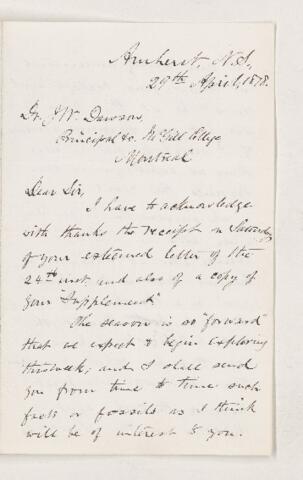 Amherst, N.S.,
29th April, 1878.
Dr. J W. Dawson,
Principal &c. McGill College
Montreal
Dear Sir,
I have to acknowledge
with thanks the receipt on Saturday
of your esteemed letter of the
24th inst. and also of a copy of
your "Supplement"
The season is so "forward"
that we expect to begin exploring
this week; and I shall send
you from time to time such
facts or fossils as I think
will be of interest to you.